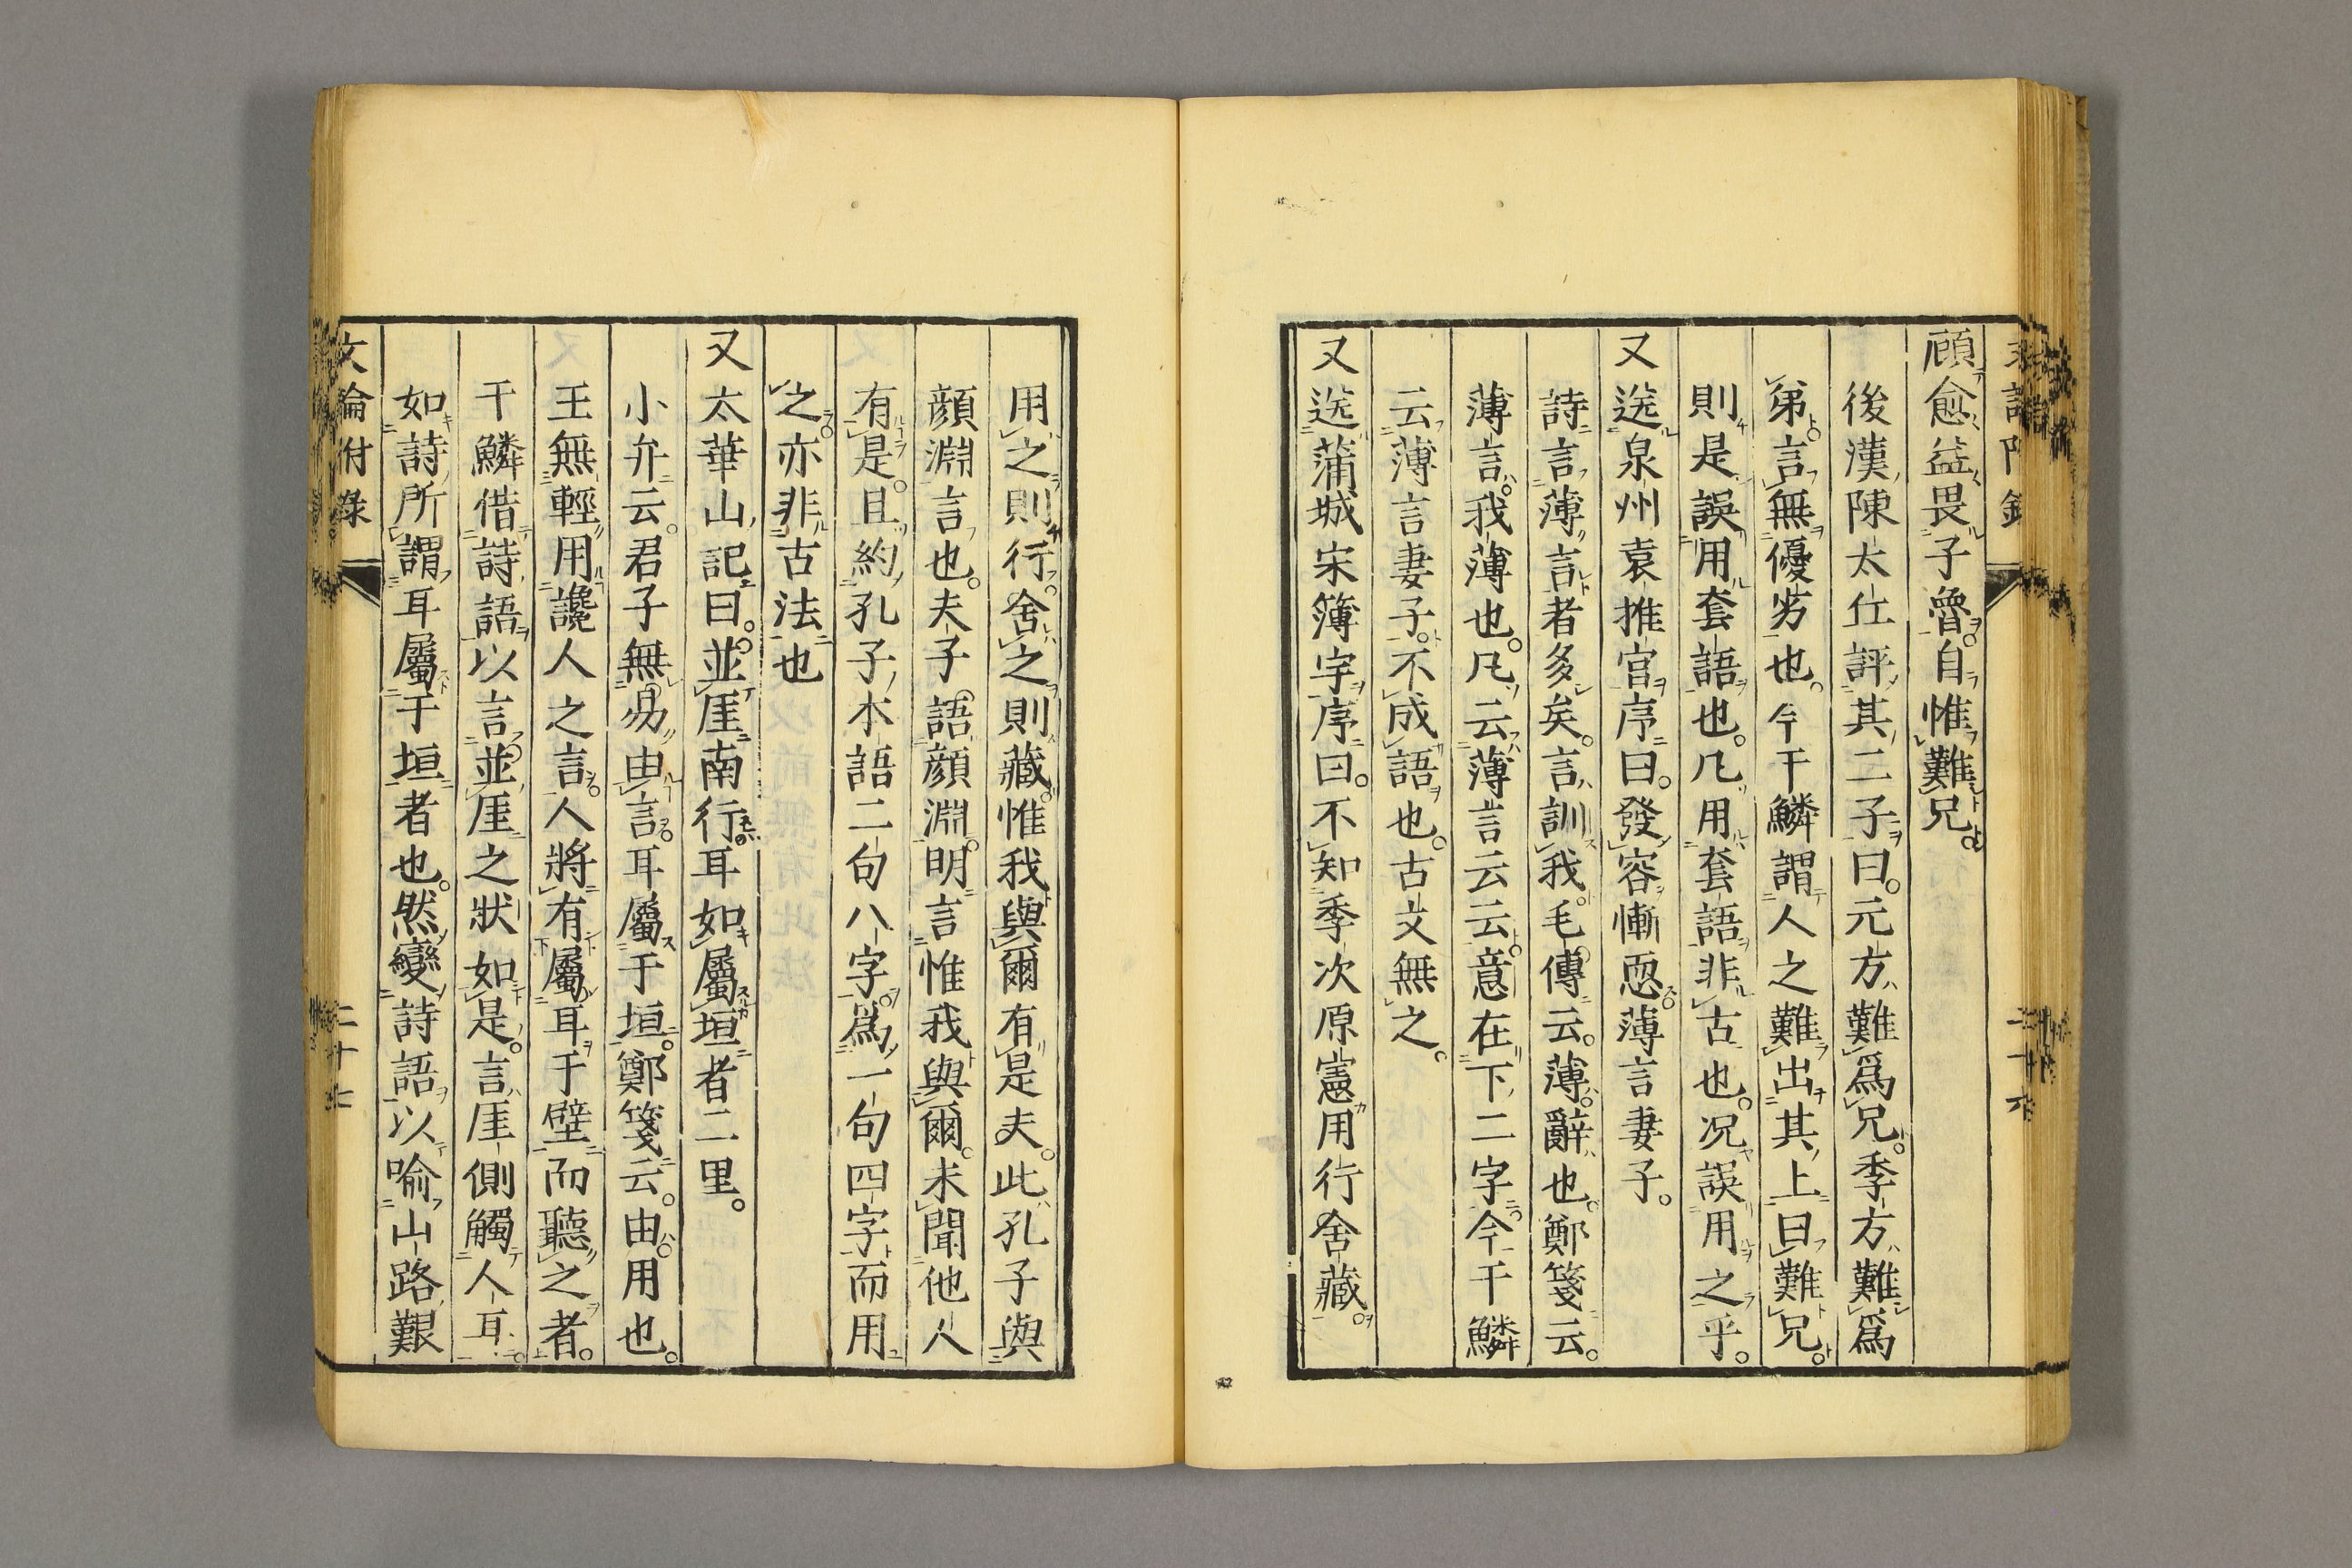 顧愈益畏子魯。自惟難兄。
後漢陳太丘評其二子曰。元方難爲兄。季方難爲
弟。言無優劣也。今于鱗謂人之難出其上曰難兄。
則是誤用套語也。凡用套語非古也。况誤用之乎。
又送泉州袁推官序曰。發容慚恧。薄言妻子。
詩言薄言者多矣。言訓我。毛傳云。薄。辭也。鄭箋云。
薄言。我薄也。凡云薄言云云。意在下二字。今于鱗
云薄言妻子。不成語也。古文無之。
又送蒲城宋簿字序曰。不知季次原憲用行舍藏。
用之則行。舍之則藏。惟我與爾有是夫。此孔子與
顏淵言也。夫子語顏淵。明言惟我與爾。未聞他人
有是。且約孔子本語二句八字。爲一句四字而用
之。亦非古法也
又太華山記曰。並厓南行。耳如屬垣者二里。
小弁云。君子無易由言。耳屬于垣。鄭箋云。由。用也。
王無輕用讒人之言。人將有屬耳于壁而聽之者。
于鱗借詩語以言並厓之狀如是。言厓側觸人耳。
如詩所謂耳屬于垣者也。然變詩語以喻山路艱
文論附錄
二十七